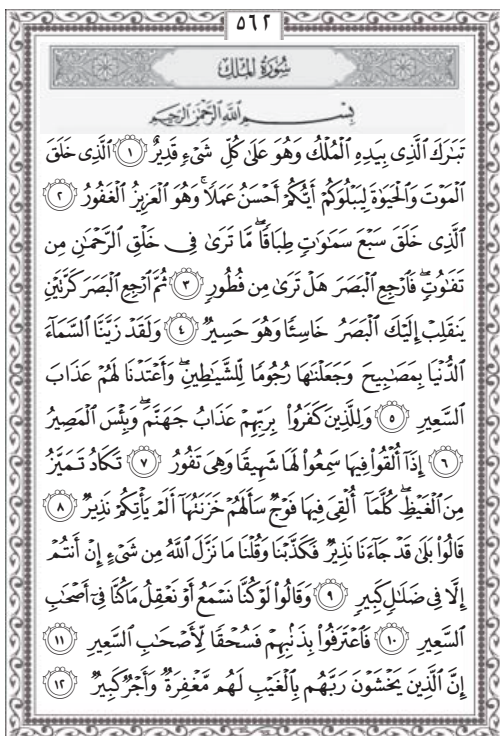 ٥٦٢
سُورَةُ الْمُلْكِ
بِسْمِ اللَّهِ الرَّحْمَٰنِ الرَّحِيمِ
تَبَارَكَ ٱلَّذِى بِيَدِهِ ٱلْمُلْكُ وَهُوَ عَلَىٰ كُلِّ شَىْءٍ قَدِيرٌ ١ ٱلَّذِى خَلَقَ
ٱلْمَوْتَ وَٱلْحَيَوٰةَ لِيَبْلُوَكُمْ أَيُّكُمْ أَحْسَنُ عَمَلًا ۚ وَهُوَ ٱلْعَزِيزُ ٱلْغَفُورُ ٢
ٱلَّذِى خَلَقَ سَبْعَ سَمَٰوَٰتٍ طِبَاقًا ۖ مَّا تَرَىٰ فِى خَلْقِ ٱلرَّحْمَٰنِ مِن
تَفَٰوُتٍ ۖ فَٱرْجِعِ ٱلْبَصَرَ هَلْ تَرَىٰ مِن فُطُورٍ ٣ ثُمَّ ٱرْجِعِ ٱلْبَصَرَ كَرَّتَيْنِ
يَنقَلِبْ إِلَيْكَ ٱلْبَصَرُ خَاسِئًا وَهُوَ حَسِيرٌ ٤ وَلَقَدْ زَيَّنَّا ٱلسَّمَآءَ
ٱلدُّنْيَا بِمَصَٰبِيحَ وَجَعَلْنَٰهَا رُجُومًا لِّلشَّيَٰطِينِ ۖ وَأَعْتَدْنَا لَهُمْ عَذَابَ
ٱلسَّعِيرِ ٥ وَلِلَّذِينَ كَفَرُوا۟ بِرَبِّهِمْ عَذَابُ جَهَنَّمَ ۖ وَبِئْسَ ٱلْمَصِيرُ
٦ إِذَآ أُلْقُوا۟ فِيهَا سَمِعُوا۟ لَهَا شَهِيقًا وَهِىَ تَفُورُ ٧ تَكَادُ تَمَيَّزُ
مِنَ ٱلْغَيْظِ ۖ كُلَّمَآ أُلْقِىَ فِيهَا فَوْجٌ سَأَلَهُمْ خَزَنَتُهَآ أَلَمْ يَأْتِكُمْ نَذِيرٌ ٨
قَالُوا۟ بَلَىٰ قَدْ جَآءَنَا نَذِيرٌ فَكَذَّبْنَا وَقُلْنَا مَا نَزَّلَ ٱللَّهُ مِن شَىْءٍ إِنْ أَنتُمْ
إِلَّا فِى ضَلَٰلٍ كَبِيرٍ ٩ وَقَالُوا۟ لَوْ كُنَّا نَسْمَعُ أَوْ نَعْقِلُ مَا كُنَّا فِىٓ أَصْحَٰبِ
ٱلسَّعِيرِ ١٠ فَٱعْتَرَفُوا۟ بِذَنۢبِهِمْ فَسُحْقًا لِّأَصْحَٰبِ ٱلسَّعِيرِ ١١
إِنَّ ٱلَّذِينَ يَخْشَوْنَ رَبَّهُم بِٱلْغَيْبِ لَهُم مَّغْفِرَةٌ وَأَجْرٌ كَبِيرٌ ١٢